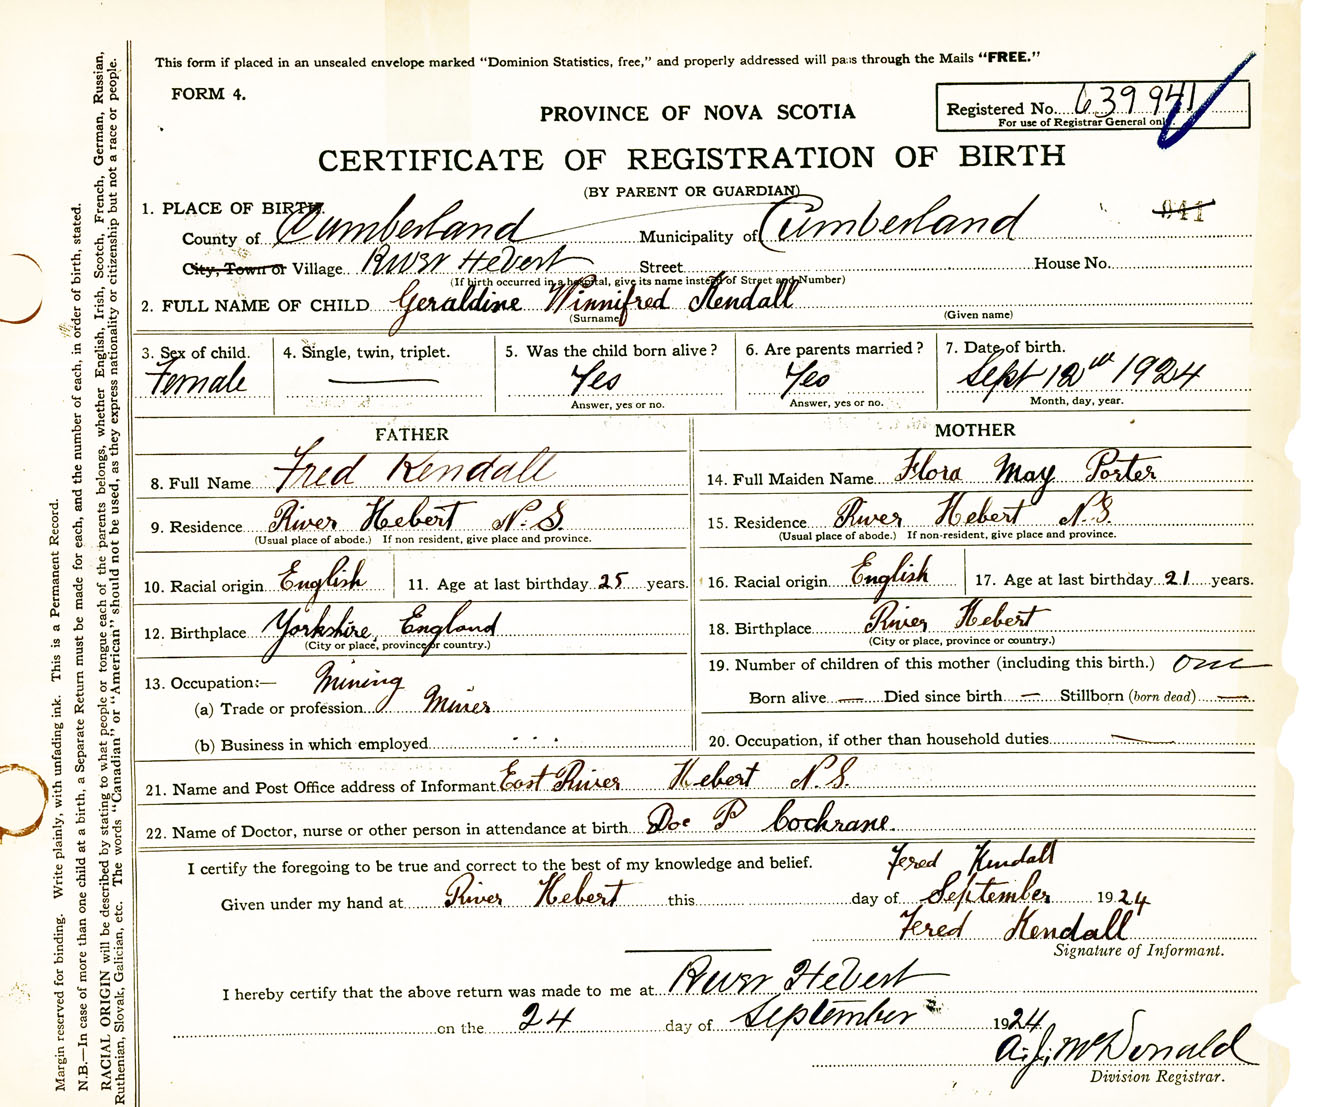 This form if placed in an unsealed envelope marked "Dominion Statistics, free," and properly addressed will pass through the Mails "FREE."
FORM 4.
Registered No. 639941
For use of Registrar General only.
PROVINCE OF NOVA SCOTIA
CERTIFICATE OF REGISTRATION OF BIRTH
(BY PARENT OR GUARDIAN)
941
1. PLACE OF BIRTH.
County of Cumberland Municipality of Cumberland
City, Town or Village River Hebert Street House No.
(If birth occurred in a hospital, give its name instead of Street and Number)
2. FULL NAME OF CHILD Geraldine Winnifred Kendall
(Surname) (Given name)
3. Sex of child. 4. Single, twin, triplet. 5. Was the child born alive? 6. Are parents married? 7. Date of birth.
Female — Yes Yes Sept 12th 1924
Answer, yes or no. Answer, yes or no. Month, day, year.
FATHER
8. Full Name Fred Kendall
9. Residence River Hebert N.S.
(Usual place of abode.) If non resident, give place and province.
10. Racial origin English 11. Age at last birthday 25 years.
12. Birthplace Yorkshire, England
(City or place, province or country.)
13. Occupation:— Mining
(a) Trade or profession Miner
(b) Business in which employed
MOTHER
14. Full Maiden Name Flora May Porter
15. Residence River Hebert N.S.
(Usual place of abode.) If non-resident, give place and province.
16. Racial origin English 17. Age at last birthday 21 years.
18. Birthplace River Hebert
(City or place, province or country.)
19. Number of children of this mother (including this birth.) one
Born alive — Died since birth — Stillborn (born dead) —
20. Occupation, if other than household duties —
21. Name and Post Office address of Informant East River Hebert N.S.
22. Name of Doctor, nurse or other person in attendance at birth Doc P Cochrane.
I certify the foregoing to be true and correct to the best of my knowledge and belief. Fered Kendall
Given under my hand at River Hebert this day of September 1924
Fered Kendall
Signature of Informant.
I hereby certify that the above return was made to me at River Hebert
on the 24 day of September 1924
A. J. McDonald
Division Registrar.
Margin reserved for binding. Write plainly, with unfading ink. This is a Permanent Record.
N.B.—In case of more than one child at a birth, a Separate Return must be made for each, and the number of each, in order of birth, stated.
RACIAL ORIGIN will be described by stating to what people or tongue each of the parents belongs, whether English, Irish, Scotch, French, German, Russian,
Ruthenian, Slovak, Galician, etc. The words "Canadian" or "American" should not be used, as they express nationality or citizenship but not a race or people.